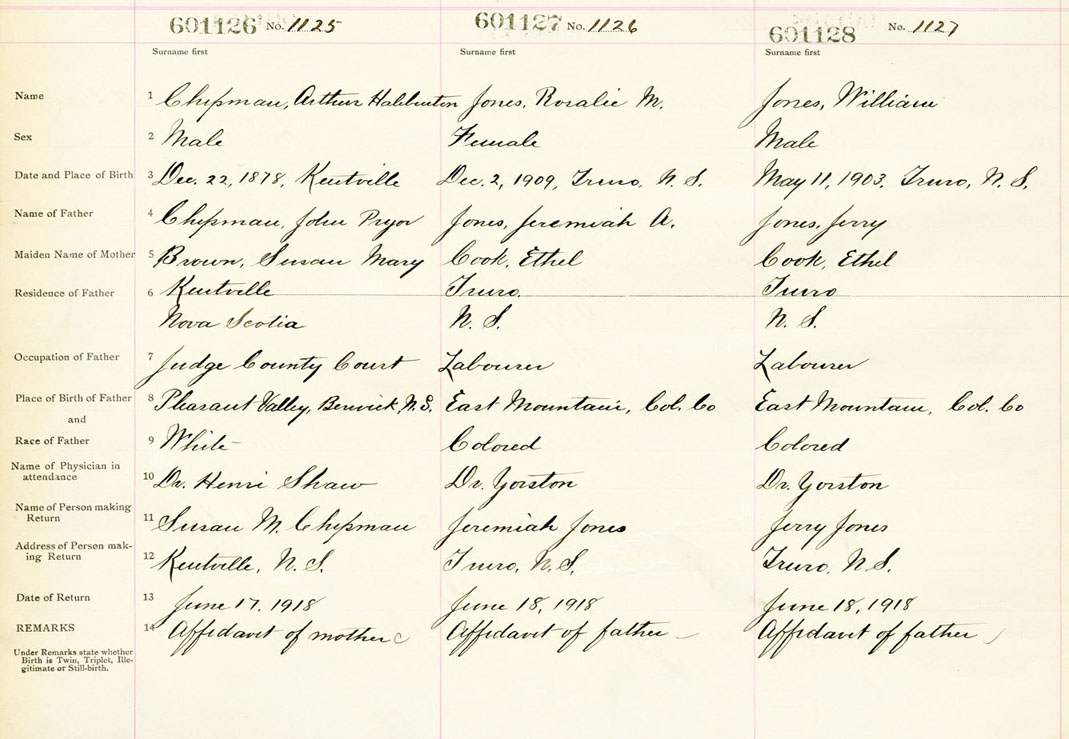 601126 No. 1125 601127 No. 1126 601128 No. 1127
Surname first Surname first Surname first
Name 1 Chipman, Arthur Haliburton Jones, Rosalie M. Jones, William
Sex 2 Male Female Male
Date and Place of Birth 3 Dec. 22, 1878, Kentville Dec. 2, 1909, Truro, N. S. May 11, 1903. Truro, N. S.
Name of Father 4 Chipman, John Pryor Jones, Jeremiah A. Jones, Jerry
Maiden Name of Mother 5 Brown, Susan Mary Cook, Ethel Cook, Ethel
Residence of Father 6 Kentville Truro. Truro
Nova Scotia N. S. N. S.
Occupation of Father 7 Judge County Court Labourer Labourer
Place of Birth of Father 8 Pleasant Valley, Berwick, N. S. East Mountain, Col. Co East Mountain, Col. Co
and
Race of Father 9 White Colored Colored
Name of Physician in
attendance 10 Dr. Henri Shaw Dr. Yorston Dr. Yorston
Name of Person making
Return 11 Susan M. Chipman Jeremiah Jones Jerry Jones
Address of Person mak-
ing Return 12 Kentville, N. S. Truro, N. S. Truro, N. S.
Date of Return 13 June 17, 1918 June 18, 1918 June 18, 1918
REMARKS 14 Affidavit of mother Affidavit of father Affidavit of father
Under Remarks state whether
Birth is Twin, Triplet, Ille-
gitimate or Still-birth.